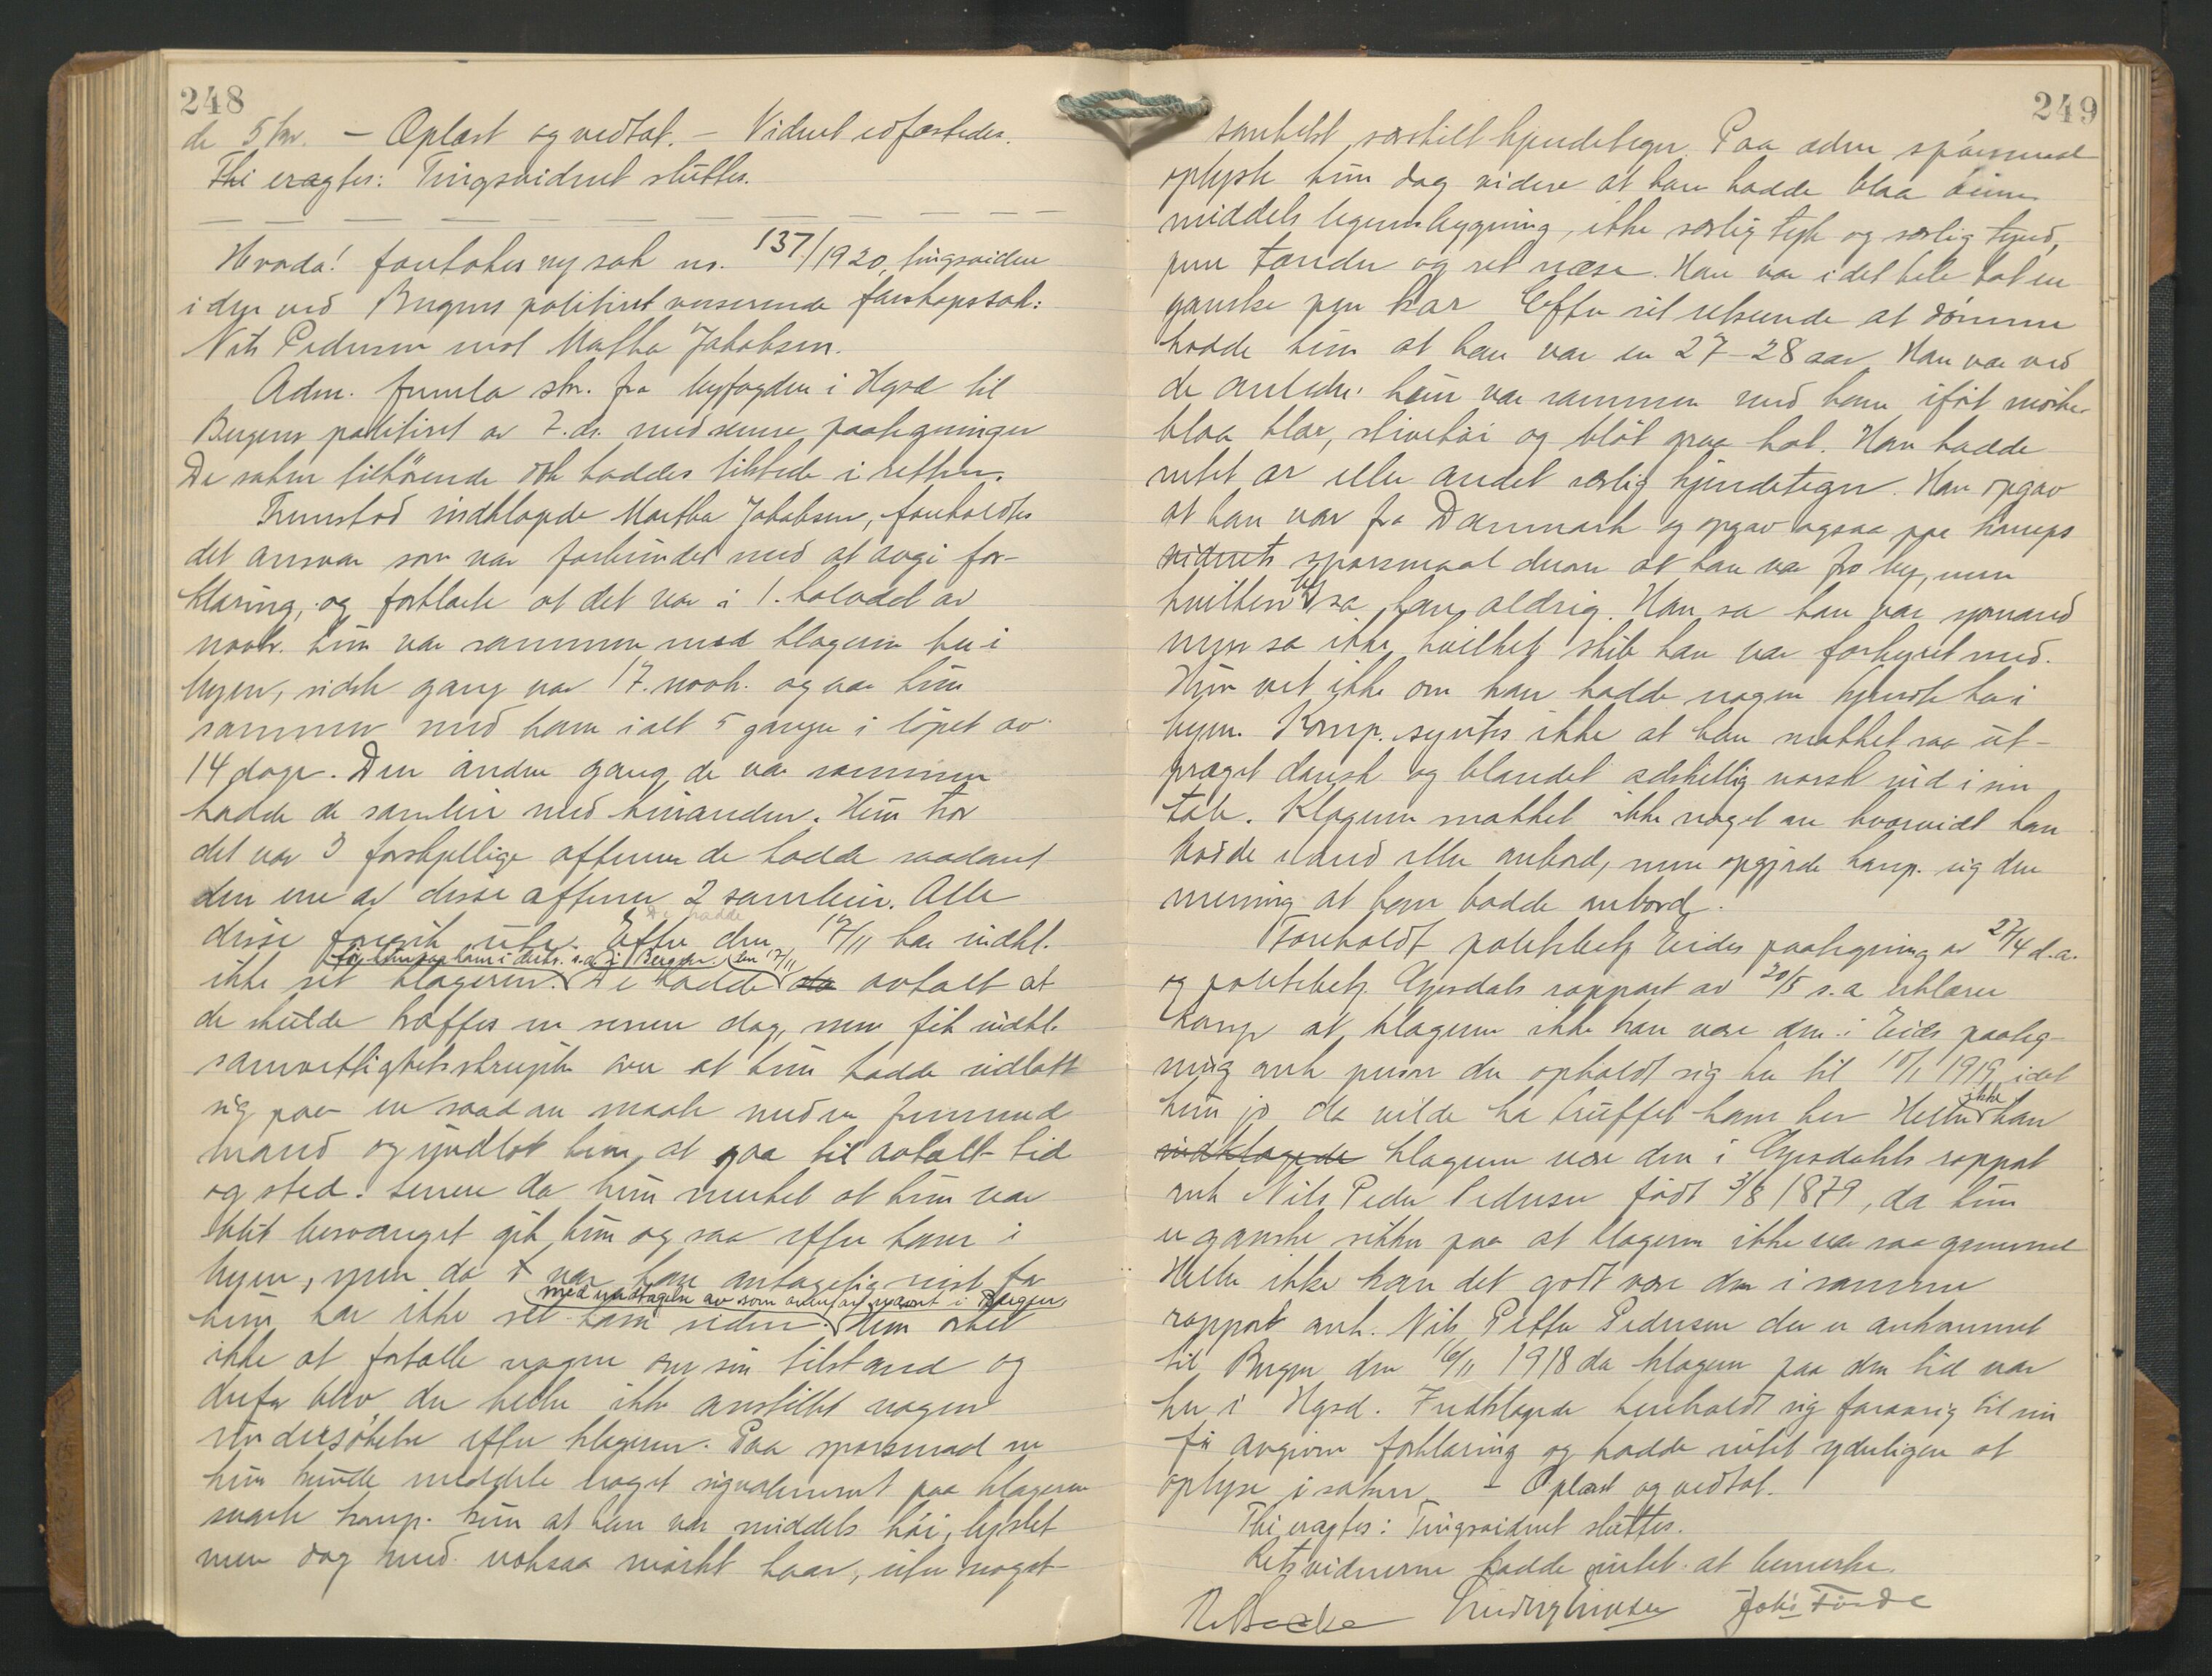 248
de 5 kr. – Oplæst og vedtat. – Vidnet edfæstedes.
Thi eragtes: Tingsvidnet sluttes.
Hvorda! foretokes ny sak nr. 137/1920, tingsvidne
i den ved Bergens politiret verserende farskapssak:
Nils Pedersen mot Martha Jakobsen.
Adm. fremla skr. fra byfogden i Hgsd til
Bergens politiret av 7. ds. med senere paategninger
De saken tilhørende dok haddes tilstede i retten.
Fremstod indklagede Martha Jakobsen, foreholdtes
det ansvar som var forbundet med at avgi for-
klaring, og forklarte at det var i 1. halvdel av
novbr. hun var sammen med klageren her i
byen, sidste gang var 17. novb. og var hun
sammen med ham ialt 5 ganger i løpet av
14 dage. Den anden gang de var sammen
hadde de samleie med hinanden. Hun tror
det var 3 forskjellige aftener de hadde saadant
den ene av disse aftener 2 samleier. Alle
disse foregik ute. Efter den 17/11 har indkl.
før hun saa ham i decbr. s.a. i Bergen. den 17/11
ikke set klageren. De hadde da avtalt at
de skulde træffes en senere dag, men fik indkl.
samvittighetsskrupler over at hun hadde indlatt
sig paa en saadan maate med en fremmed
mand og undlot hun at gaa til avtalt tid
og sted. Senere da hun merket at hun var
blit besvangret gik hun og saa efter ham i
byen, men da var han antagelig reist for
med undtagelse av som ovenfor nævnt i Bergen
hun har ikke set ham siden. Hun orket
ikke at fortælle nogen om sin tilstand og
derfor blev der heller ikke anstillet nogen
undersøkelse efter klageren. Paa spørsmaal om
hun kunde meddele noget signalement paa klageren
svarte komp. hun at han var middels høi, lyslet
men dog med noksaa mørkt haar, uten noget
249
somhelst særskilt kjendetegn. Paa adm spørsmaal
oplyste hun dog videre at han hadde blaa øine
middels legemsbygning, ikke særlig tyk og særlig tynd,
pene tænder og ret næse. Han var i det hele tat en
ganske pen kar Efter sit utseende at dømme
trodde hun at han var en 27-28 aar. Han var ved
de anledn. hun var sammen med ham iført mørke-
blaa klær, stivetøi og bløt graa hat. Han hadde
intet ar eller andet særlig kjendetegn. Han opgav
at han var fra Danmark og opgav ogsaa paa komps
vidnets spørsmaal derom at han var fra by, men
hvilken by sa han aldrig. Han sa han var sjømand
men sa ikke hvilket skib han var forhyret med.
Hun vet ikke om han hadde nogen kjendte her i
byen. Komp. syntes ikke at han snakket saa ut-
præget dansk og blandet adskillig norsk ind i sin
tale. Klageren snakket ikke noget om hvorvidt han
bodde iland eller ombord, men opgjorde komp. sig den
mening at han bodde ombord.
Foreholdt politibetj Eides paategning av 27/4 d.a.
og politibetj. Gjesdals rapport av 20/5 s.a erklærer
komp at klageren ikke kan være den i Eides paateg-
ning omh person der opholdt sig her til 10/1 1919 idet
hun jo da vilde ha truffet ham her Heller ikke kan
indklagede klageren være den i Gjesdahls rapport
omh Nils Peder Pedersen født 3/8 1879, da hun
er ganske sikker paa at klageren ikke var saa gammel
Heller ikke kan det godt være den i samme
rapport omh. Nils Petter Pedersen der er ankommet
til Bergen den 16/11 1918 da klageren paa den tid var
her i Hgsd. Indklagede henholdt sig forøvrig til sin
før avgivne forklaring og hadde intet yderligere at
oplyse i saken. – Oplæst og vedtat.
Thi eragtes: Tingsvidnet sluttes.
Retsvidnerne hadde intet at bemerke.
Johs Førde